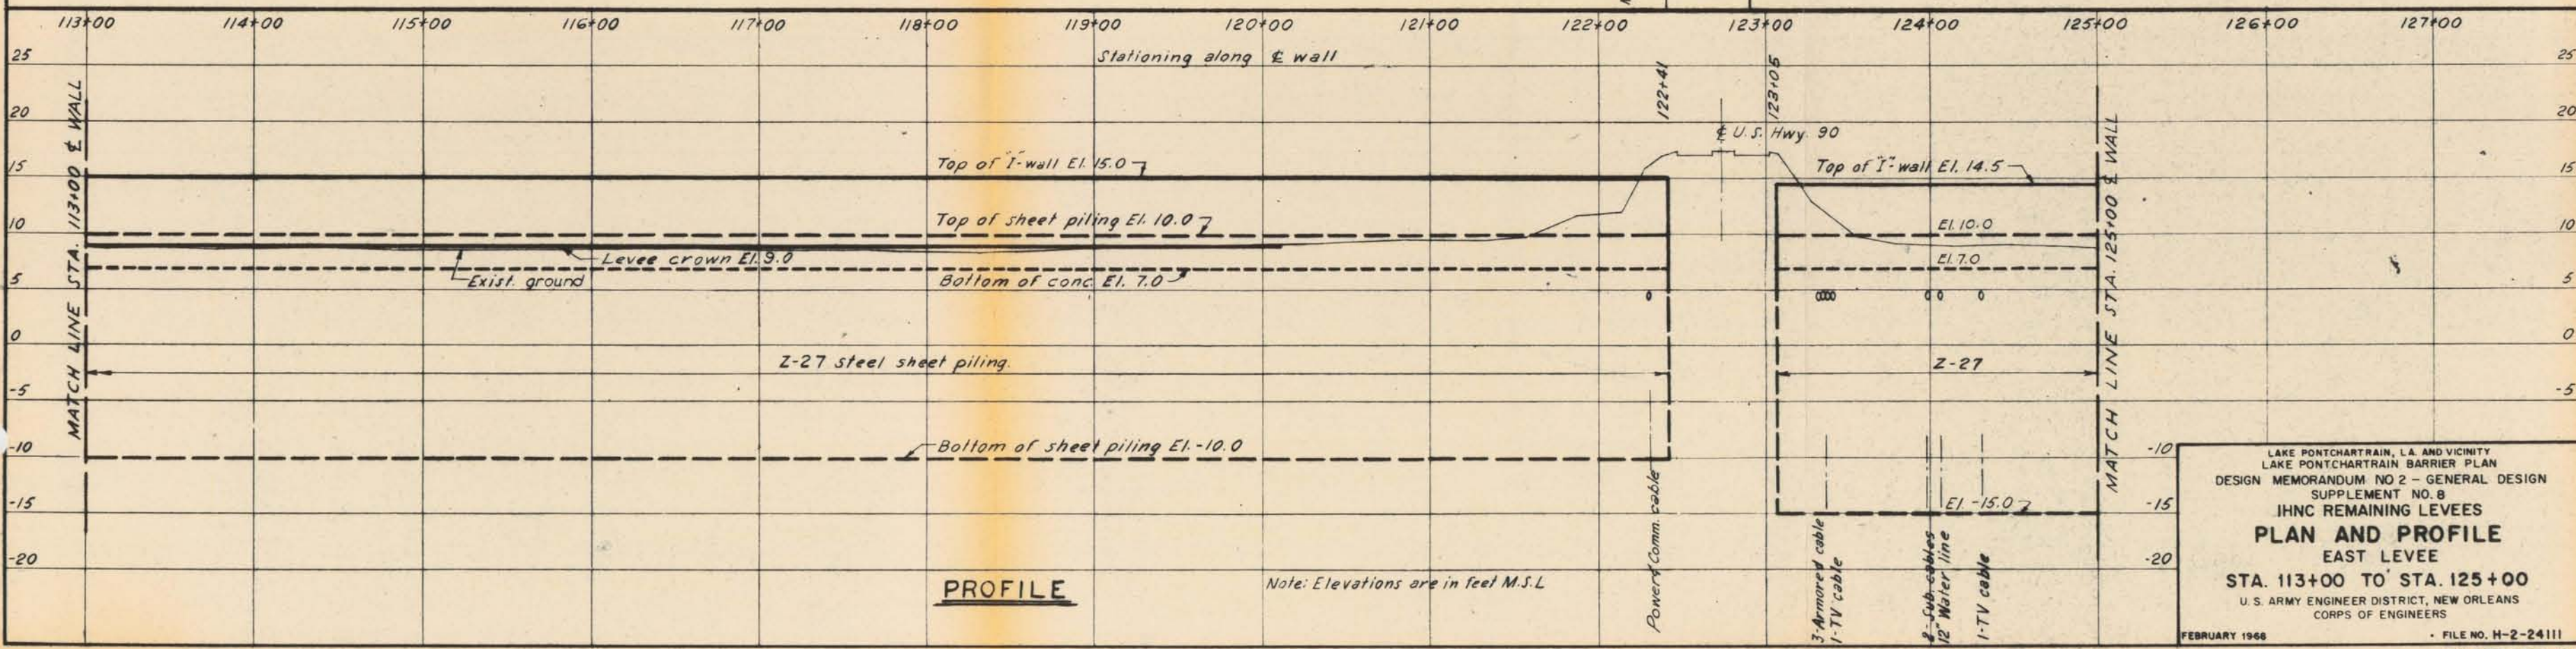 113+00 114+00 115+00 116+00 117+00 118+00 119+00 120+00 121+00 122+00 123+00 124+00 125+00 126+00 127+00
Stationing along ℄ wall
25 25
20 20
15 15
10 10
5 5
0 0
-5 -5
-10 -10
-15 -15
-20 -20
MATCH LINE STA. 113+00 ℄ WALL
122+41
123+05
℄ U.S. Hwy. 90
Top of "I"-wall El. 15.0
Top of "I"-wall El. 14.5
Top of sheet piling El. 10.0
El. 10.0
Levee crown El. 9.0
El. 7.0
Exist. ground
Bottom of conc. El. 7.0
Z-27 steel sheet piling.
Z-27
Bottom of sheet piling El. -10.0
El. -15.0
Power & Comm. cable
3-Armored cable
1-TV cable
2-Sub. cables
12" Water line
1-TV cable
MATCH LINE STA. 125+00 ℄ WALL
PROFILE
Note: Elevations are in feet M.S.L
LAKE PONTCHARTRAIN, LA. AND VICINITY
LAKE PONTCHARTRAIN BARRIER PLAN
DESIGN MEMORANDUM NO 2 - GENERAL DESIGN
SUPPLEMENT NO. 8
IHNC REMAINING LEVEES
PLAN AND PROFILE
EAST LEVEE
STA. 113+00 TO STA. 125+00
U. S. ARMY ENGINEER DISTRICT, NEW ORLEANS
CORPS OF ENGINEERS
FEBRUARY 1968 FILE NO. H-2-24111